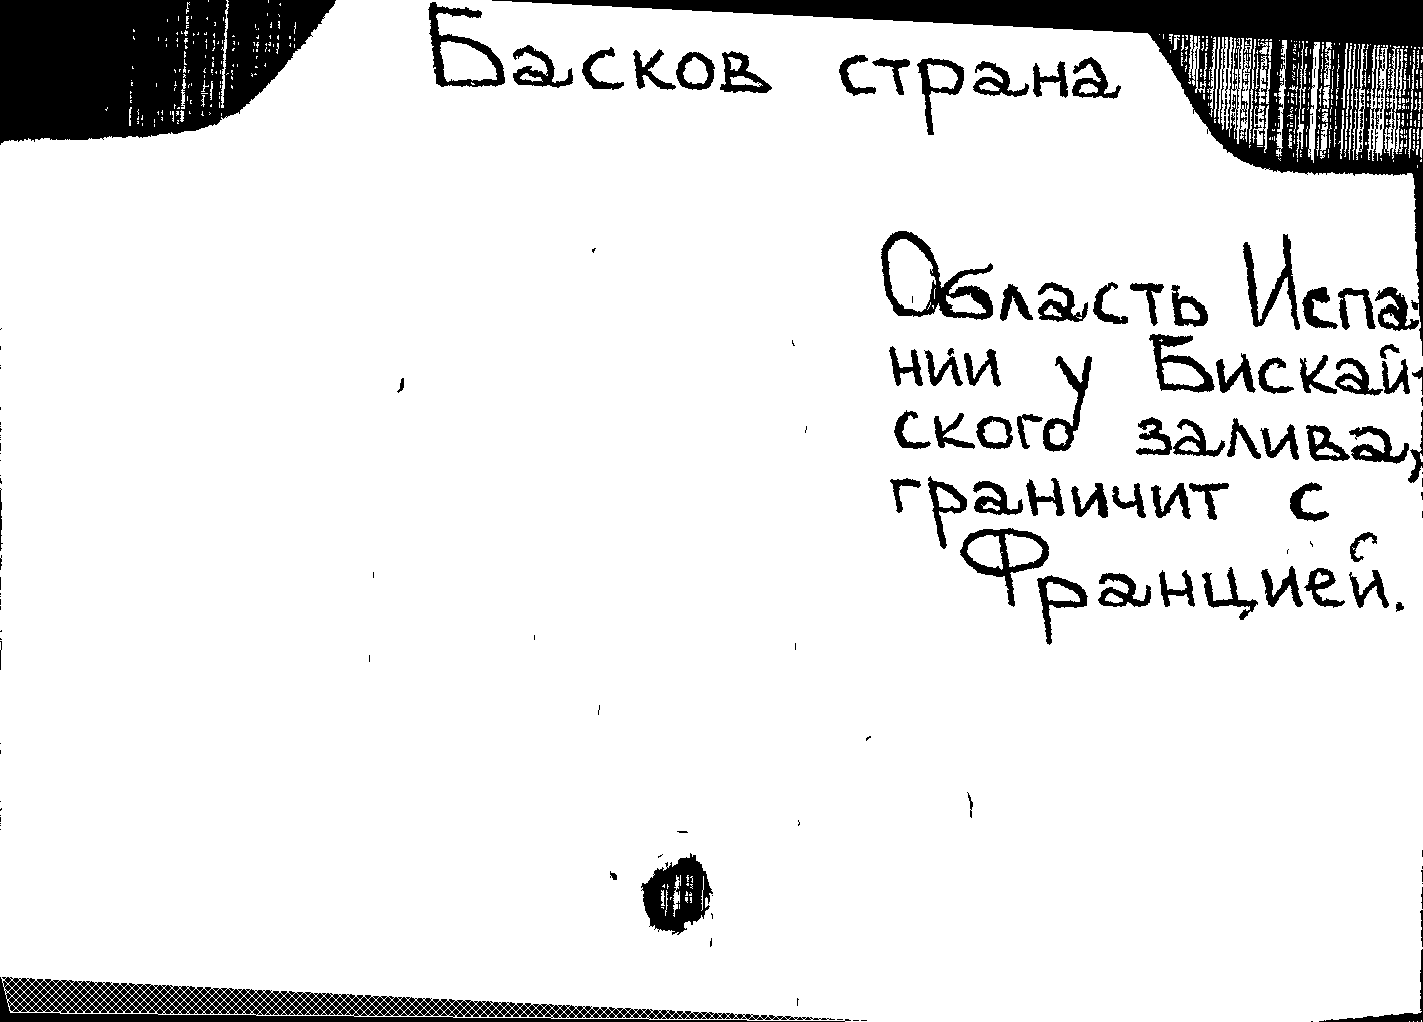 Басков страна
Область Испа-
нии у Бискай-
ского залива,
граничит с
Францией.